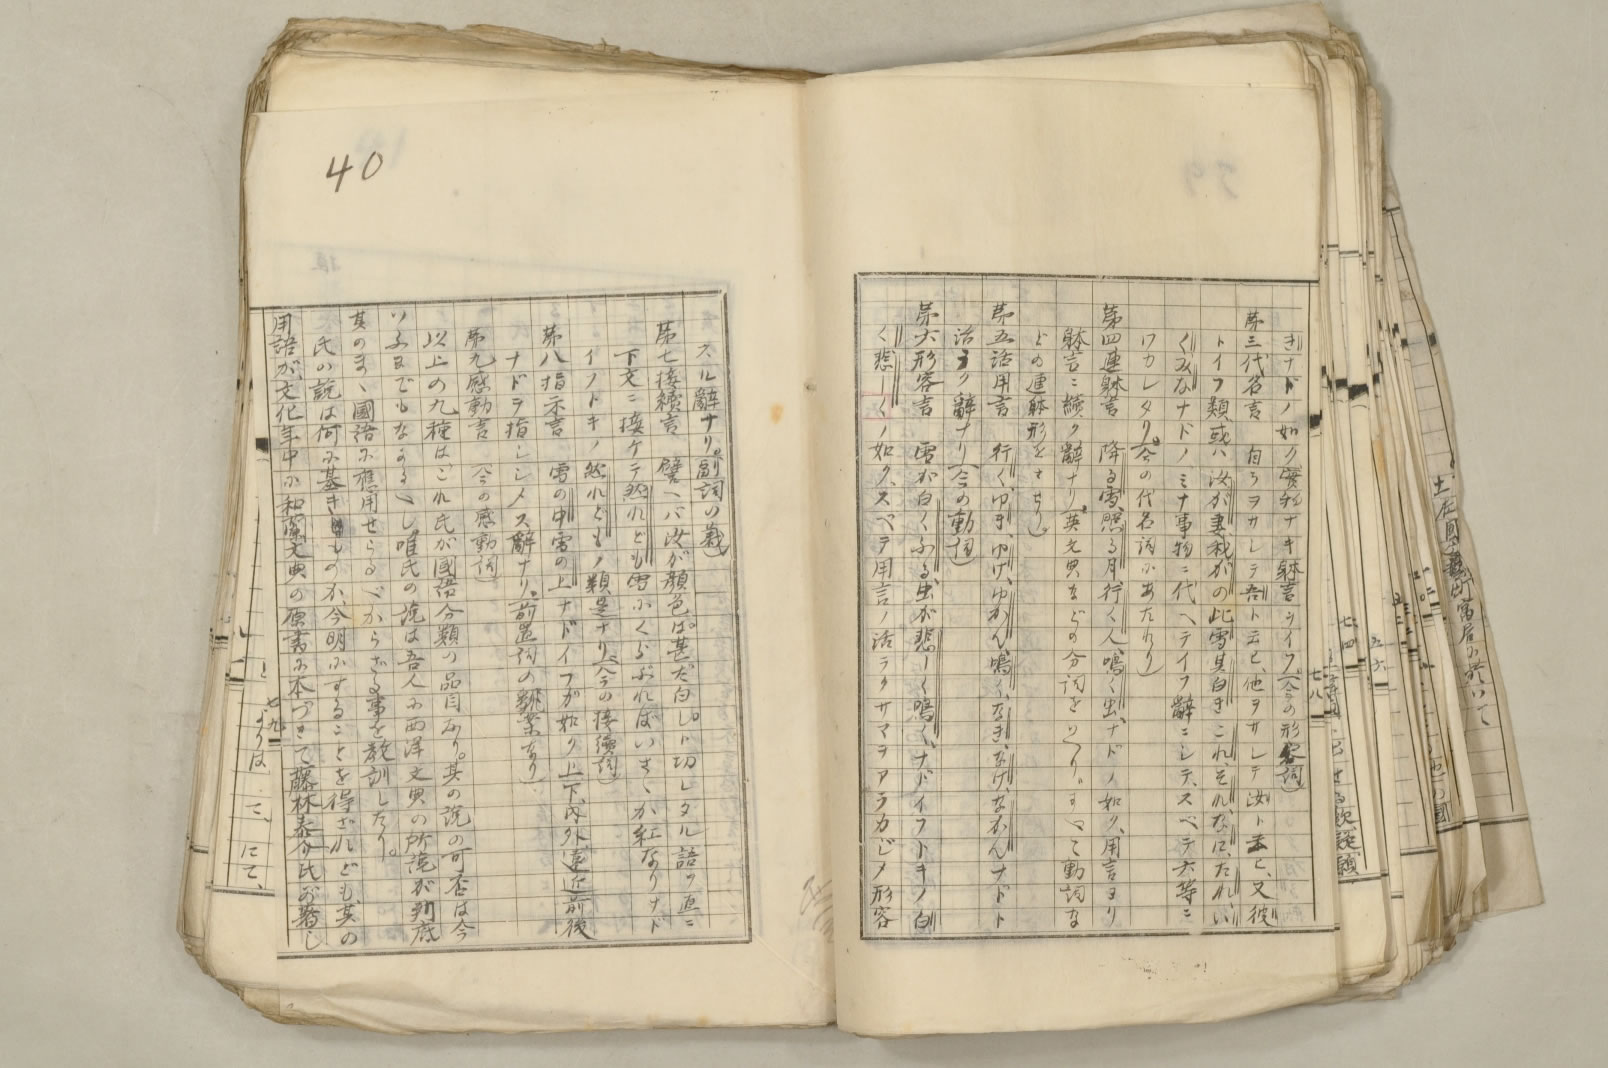 きナドノ如ク實物ナキ躰言ヲイフ(今の形容詞)
第三代名言 自ラヲサシテ吾ト云ヒ、他ヲサシテ汝ト云ヒ、又彼
トイフ類或ハ汝が妻我がの此雪其白きこれ、それ、なに、たれ、い
くみなナドノミナ事物ニ代ヘテイフ辭ニシテ、スベテ六等ニ
ワカレタリ(今の代名詞にあたれり)
第四連躰言 降る雪、照る月、行く人、鳴く虫、ナドノ如ク、用言ヨリ
躰言ニ續ク辭ナリ(英文典などの分詞をいへり。すべて動詞な
どの連躰形をもちし)
第五活用言 行く、ゆき、ゆけ、ゆかん、鳴く、なき、なけ、なかんナドト
活ラク辭ナリ(今の動詞)
第六形容言 雪が白くふる、虫が悲しく鳴く、ナドイフトキノ白
く悲しくノ如ク、スベテ用言ノ活ラクサマヲアラカジメ形容
七八
40
スル辭ナリ(副詞の義)
第七接續言 譬ヘバ汝が顔色は甚だ白し。ト切レタル語ヲ直ニ
下文ニ接ケテ然れども雪にくらぶればいさゝか紅なりナド
イフトキノ然れどもノ類是ナリ(今の接續詞)
第八指示言 雪の中雪の上ナドイフガ如ク上下内外遠近前後
ナドヲ指シシメス辭ナリ。(前置詞の飜案なり)
第九感動言 (今の感動詞)
以上の九種はこれ氏が國語分類の品目なり。其の説の可否は今
いふまでもなかるべし唯氏の説は吾人に西洋文典の所説が到底
其のまゝ國語に應用せらるべからざる事を教訓したり。
氏の説は何に基きしものか今明にすることを得ざれども、其の
用語が文化年中に和蘭文典の原書に本づきて藤林泰介氏が著し
七九
七四
五六